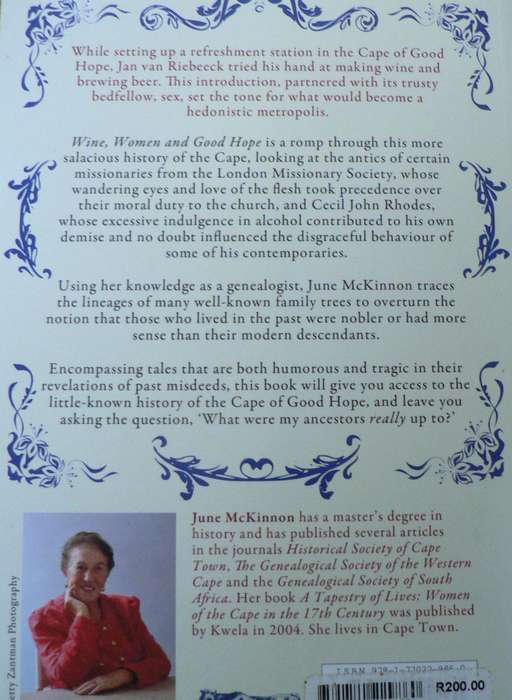 While setting up a refreshment station in the Cape of Good
Hope, Jan van Riebeeck tried his hand at making wine and
brewing beer. This introduction, partnered with its trusty
bedfellow, sex, set the tone for what would become a
hedonistic metropolis.
Wine, Women and Good Hope is a romp through this more
salacious history of the Cape, looking at the antics of certain
missionaries from the London Missionary Society, whose
wandering eyes and love of the flesh took precedence over
their moral duty to the church, and Cecil John Rhodes,
whose excessive indulgence in alcohol contributed to his own
demise and no doubt influenced the disgraceful behaviour of
some of his contemporaries.
Using her knowledge as a genealogist, June McKinnon traces
the lineages of many well-known family trees to overturn the
notion that those who lived in the past were nobler or had more
sense than their modern descendants.
Encompassing tales that are both humorous and tragic in their
revelations of past misdeeds, this book will give you access to the
little-known history of the Cape of Good Hope, and leave you
asking the question, ‘What were my ancestors really up to?’
June McKinnon has a master’s degree in
history and has published several articles
in the journals Historical Society of Cape
Town, The Genealogical Society of the Western
Cape and the Genealogical Society of South
Africa. Her book A Tapestry of Lives: Women
of the Cape in the 17th Century was published
by Kwela in 2004. She lives in Cape Town.
Zantman Photography
ISBN
R200.00